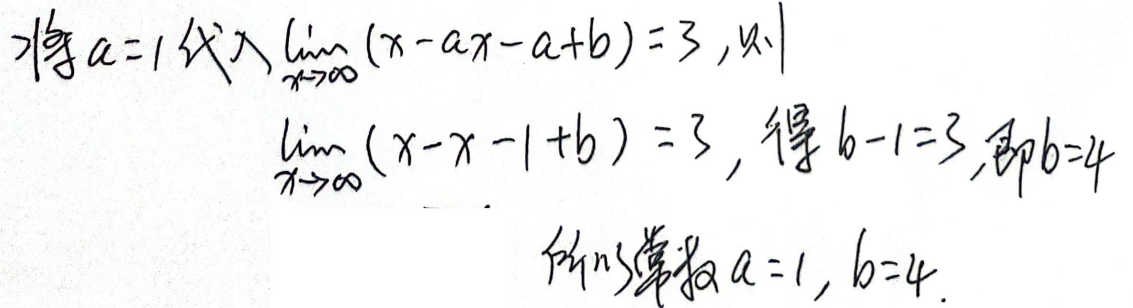 将a=1代入lim(x-ax-a+b)=3,则
x→∞
lim(x-x-1+b)=3,得b-1=3,即b=4
x→∞
所以常数a=1,b=4.